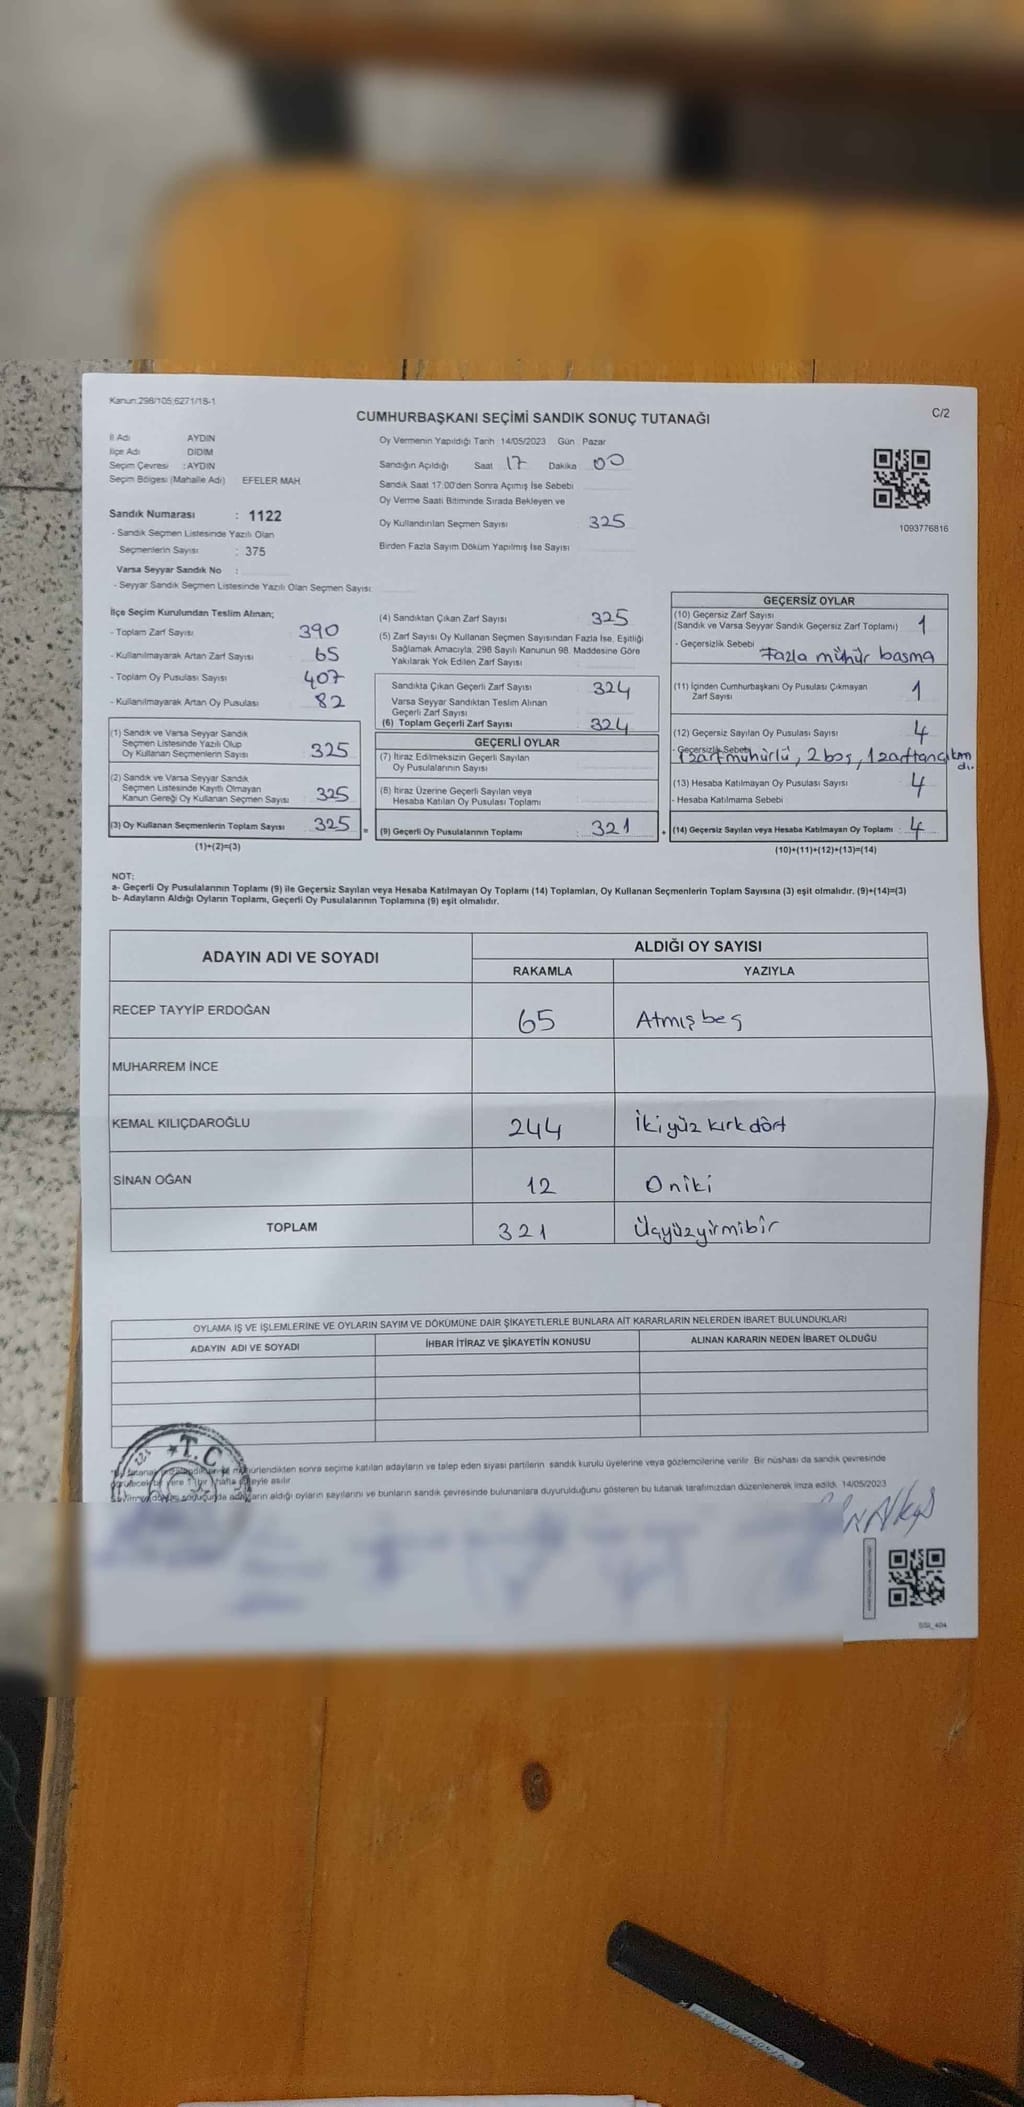 Kanun:298/105;6271/18-1
CUMHURBAŞKANI SEÇİMİ SANDIK SONUÇ TUTANAĞI
C/2
İl Adı AYDIN
İlçe Adı DİDİM
Seçim Çevresi : AYDIN
Seçim Bölgesi (Mahalle Adı) EFELER MAH.
Sandık Numarası : 1122
- Sandık Seçmen Listesinde Yazılı Olan
Seçmenlerin Sayısı : 375
Varsa Seyyar Sandık No :
- Seyyar Sandık Seçmen Listesinde Yazılı Olan Seçmen Sayısı:
Oy Vermenin Yapıldığı Tarih 14/05/2023 Gün Pazar
Sandığın Açıldığı Saat 17 Dakika 00
Sandık Saat 17:00'den Sonra Açımış İse Sebebi
Oy Verme Saati Bitiminde Sırada Bekleyen ve
Oy Kullandırılan Seçmen Sayısı 325
Birden Fazla Sayım Döküm Yapılmış İse Sayısı
1093776816
İlçe Seçim Kurulundan Teslim Alınan;
- Toplam Zarf Sayısı 390
- Kullanılmayarak Artan Zarf Sayısı 65
- Toplam Oy Pusulası Sayısı 407
- Kullanılmayarak Artan Oy Pusulası 82
(1) Sandık ve Varsa Seyyar Sandık
Seçmen Listesinde Yazılı Olup
Oy Kullanan Seçmenlerin Sayısı 325
(2) Sandık ve Varsa Seyyar Sandık
Seçmen Listesinde Kayıtlı Olmayan
Kanun Gereği Oy Kullanan Seçmen Sayısı 325
(3) Oy Kullanan Seçmenlerin Toplam Sayısı 325
(1)+(2)=(3)
(4) Sandıktan Çıkan Zarf Sayısı 325
(5) Zarf Sayısı Oy Kullanan Seçmen Sayısından Fazla İse, Eşitliği
Sağlamak Amacıyla, 298 Sayılı Kanunun 98. Maddesine Göre
Yakılarak Yok Edilen Zarf Sayısı
Sandıkta Çıkan Geçerli Zarf Sayısı 324
Varsa Seyyar Sandıktan Teslim Alınan
Geçerli Zarf Sayısı
(6) Toplam Geçerli Zarf Sayısı 324
GEÇERLİ OYLAR
(7) İtiraz Edilmeksizin Geçerli Sayılan
Oy Pusulalarının Sayısı
(8) İtiraz Üzerine Geçerli Sayılan veya
Hesaba Katılan Oy Pusulası Toplamı
= (9) Geçerli Oy Pusulalarının Toplamı : 321
GEÇERSİZ OYLAR
(10) Geçersiz Zarf Sayısı
(Sandık ve Varsa Seyyar Sandık Geçersiz Zarf Toplamı) 1
- Geçersizlik Sebebi Fazla mühür basma
(11) İçinden Cumhurbaşkanı Oy Pusulası Çıkmayan
Zarf Sayısı 1
(12) Geçersiz Sayılan Oy Pusulası Sayısı 4
- Geçersizlik Sebebi
mühürlü, 2 boş,
(13) Hesaba Katılmayan Oy Pusulası Sayısı 4
- Hesaba Katılmama Sebebi
+ (14) Geçersiz Sayılan veya Hesaba Katılmayan Oy Toplamı : 4
(10)+(11)+(12)+(13)=(14)
NOT:
a- Geçerli Oy Pusulalarının Toplamı (9) ile Geçersiz Sayılan veya Hesaba Katılmayan Oy Toplamı (14) Toplamları, Oy Kullanan Seçmenlerin Toplam Sayısına (3) eşit olmalıdır. (9)+(14)=(3)
b- Adayların Aldığı Oyların Toplamı, Geçerli Oy Pusulalarının Toplamına (9) eşit olmalıdır.
ADAYIN ADI VE SOYADI
ALDIĞI OY SAYISI
RAKAMLA YAZIYLA
RECEP TAYYİP ERDOĞAN 65 Atmışbeş
MUHARREM İNCE
KEMAL KILIÇDAROĞLU 244 İkiyüz kırk dört
SİNAN OĞAN 12 Oniki
TOPLAM 321 Üçyüzyirmibir
OYLAMA İŞ VE İŞLEMLERİNE VE OYLARIN SAYIM VE DÖKÜMÜNE DAİR ŞİKAYETLERLE BUNLARA AİT KARARLARIN NELERDEN İBARET BULUNDUKLARI
ADAYIN ADI VE SOYADI İHBAR İTİRAZ VE ŞİKAYETİN KONUSU ALINAN KARARIN NEDEN İBARET OLDUĞU
T.C
sonra seçime katılan adayların ve talep eden siyasi partilerin sandık kurulu üyelerine veya gözlemcilerine verilir. Bir nüshası da sandık çevresinde
asılır.
aldığı oyların sayılarını ve bunların sandık çevresinde bulunanlara duyurulduğunu gösteren bu tutanak tarafımızdan düzenlenerek imza edildi. 14/05/2023